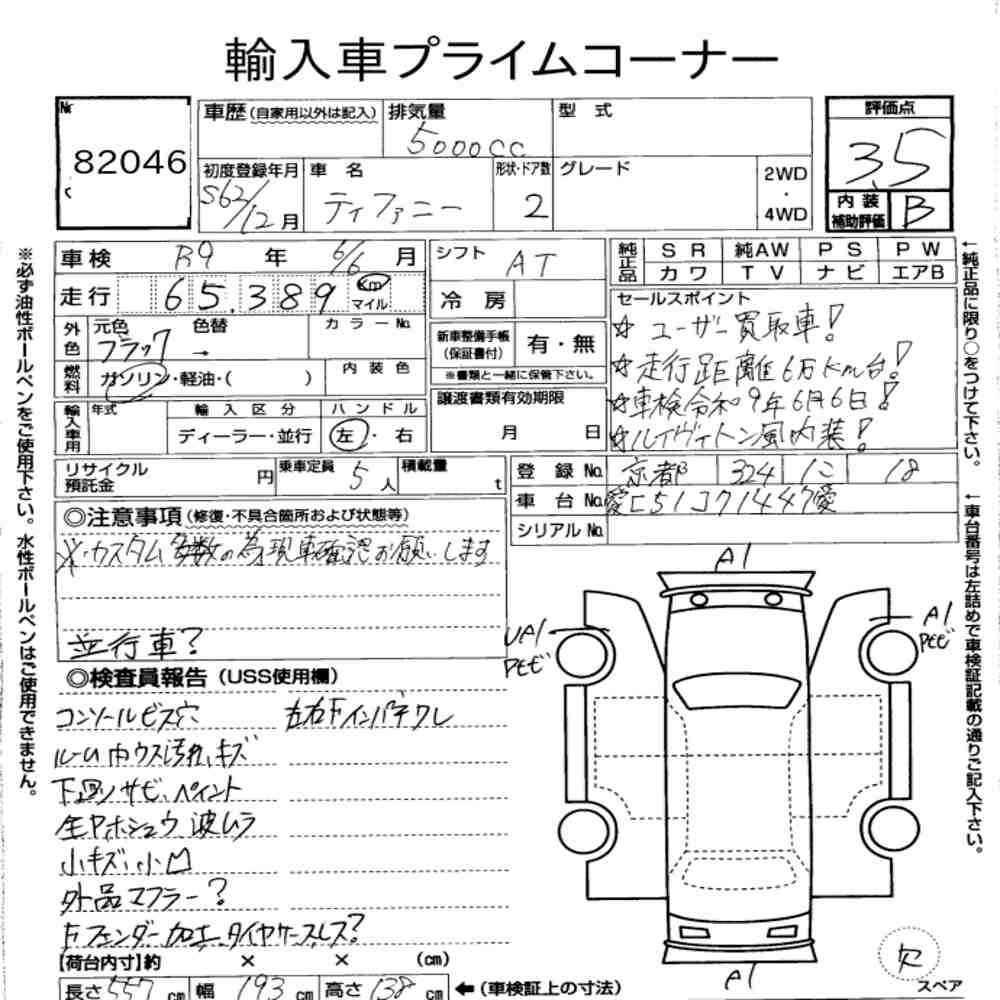 輸入車プライムコーナー
Nr 82046
車歴 (自家用以外は記入) 排気量 5000cc 型式
評価点 3.5
初度登録年月 S62/12月 車名 ティファニー 形状・ドア数 2 グレード 2WD・4WD
内装補助評価 B
車検 R9年 6/6月 シフト AT
純正品 SR 純AW PS PW
カワ TV ナビ エアB
走行 65,389 Km マイル 冷房
セールスポイント
☆ ユーザー買取車!
☆走行距離6万Km台!
☆車検令和9年6月6日!
☆ルイヴィトン風内装!
外色 元色 ブラック → 色替 カラーNo.
新車整備手帳(保証書付) 有・無
※書類と一緒に保管下さい。
燃料 ガソリン・軽油・( ) 内装色
譲渡書類有効期限 月 日
輸入車用 年式 輸入区分 ハンドル
ディーラー・並行 左・右
リサイクル預託金 円 乗車定員 5人 積載量 t
登録No. 京都 324 に 18
車台No. 愛[51]71447愛
シリアルNo.
◎注意事項 (修復・不具合箇所および状態等)
※・カスタム多数の為現車確認お願いします
並行車?
◎検査員報告 (USS使用欄)
コンソールビス穴 左右Fインパネワレ
ルーム内ウス汚れ、キズ
下廻りサビ、ペイント
全ヤホシュウ波ムラ
小キズ、小凹
外品マフラー?
Fフェンダー加工、タイヤケースレス?
【荷台内寸】約 × × (cm)
長さ 557 cm 幅 193 cm 高さ 138 cm ←(車検証上の寸法)
A1
UA1
Pモビ
A1
Pモビ
A1
欠
スペア
※必ず油性ボールペンをご使用下さい。水性ボールペンはご使用できません。
←純正品に限り○をつけて下さい。
←車台番号は左詰めで車検証記載の通りご記入下さい。